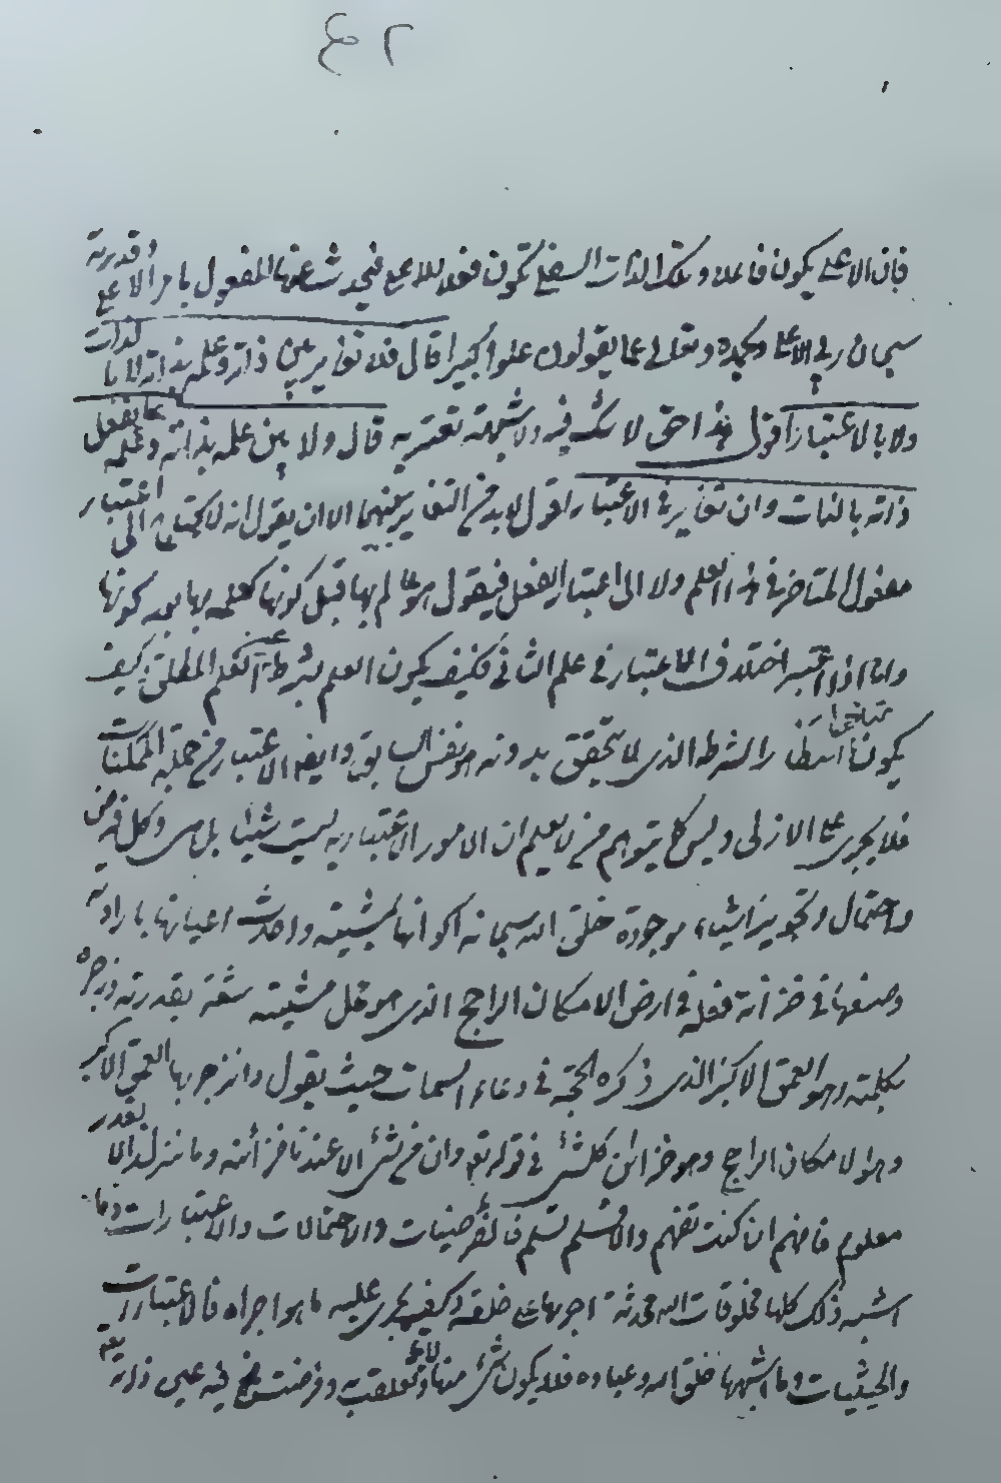 ٤٢
فان الاعلى يكون فاعلا وتلك الذات السفلى تكون فعلا للاعلى فيحدث عنها المفعول بامر الاعلى وقدرته
سبحان ربي الاعلى وبحمده وتعالى عما يقولون علوا كبيرا قال فلا تغاير بين ذاته وعلمه بذاته لا بالذات
ولا بالاعتبار اقول هذا حق لا شك فيه ولا شبهة تعتريه قال ولا بين علمه بذاته وعلمه بما يفعل
ذاته بالذات وان تغاير في الاعتبار اقول لابد من التغاير بينهما الا ان يقول انه لا يحتاج الى اعتبار
مفعول المتاخر في هذا العلم ولا الى اعتبار الفعل فيقول هو عالم بها قبل كونها كعلمه بها بعد كونها
واما اذا اعتبر اختلاف الاعتبار في علم الثاني فكيف يكون العلم بشرط عين العلم المطلق كيف
يكونا متباينا الشرط الذي لا يتحقق بدونه هو نفس وايضا الاعتبار من جملة الممكنات
فلا يجري على الازلي وليس كما يتوهم من لا يعلم ان الامور الاعتبارية ليست شيئا بل هي وكل فرض
واحتمال وتجويز اشياء موجودة خلق الله سبحانه اكوانها بمشيته واحدث اعيانها بارادته
وصنعها في خزائنه فعله في ارض الامكان الراجح الذي هو محل مشيته بقدرته وزجره
بكلمته وهو العمق الاكبر الذي ذكره الحجة في دعاء السمات حيث يقول وانزجر بها العمق الاكبر
وهو الامكان الراجح وهو خزائن كلشئ في قوله تع وان من شئ الا عندنا خزائنه وما ننزله الا بقدر
معلوم فافهم ان كنت تفهم والا فسلم تسلم فالفرضيات والاحتمالات والاعتبارات وما
اشبه ذلك كلها مخلوقات الله محدثة اجراها على خلقه وكيف يجري عليه ما هو اجراه فالاعتبارات
والحيثيات وما اشبهها خلق الله وعباده فلا يكون شئ منها وتعلقت به وفرضت فيه عين ذاته تع